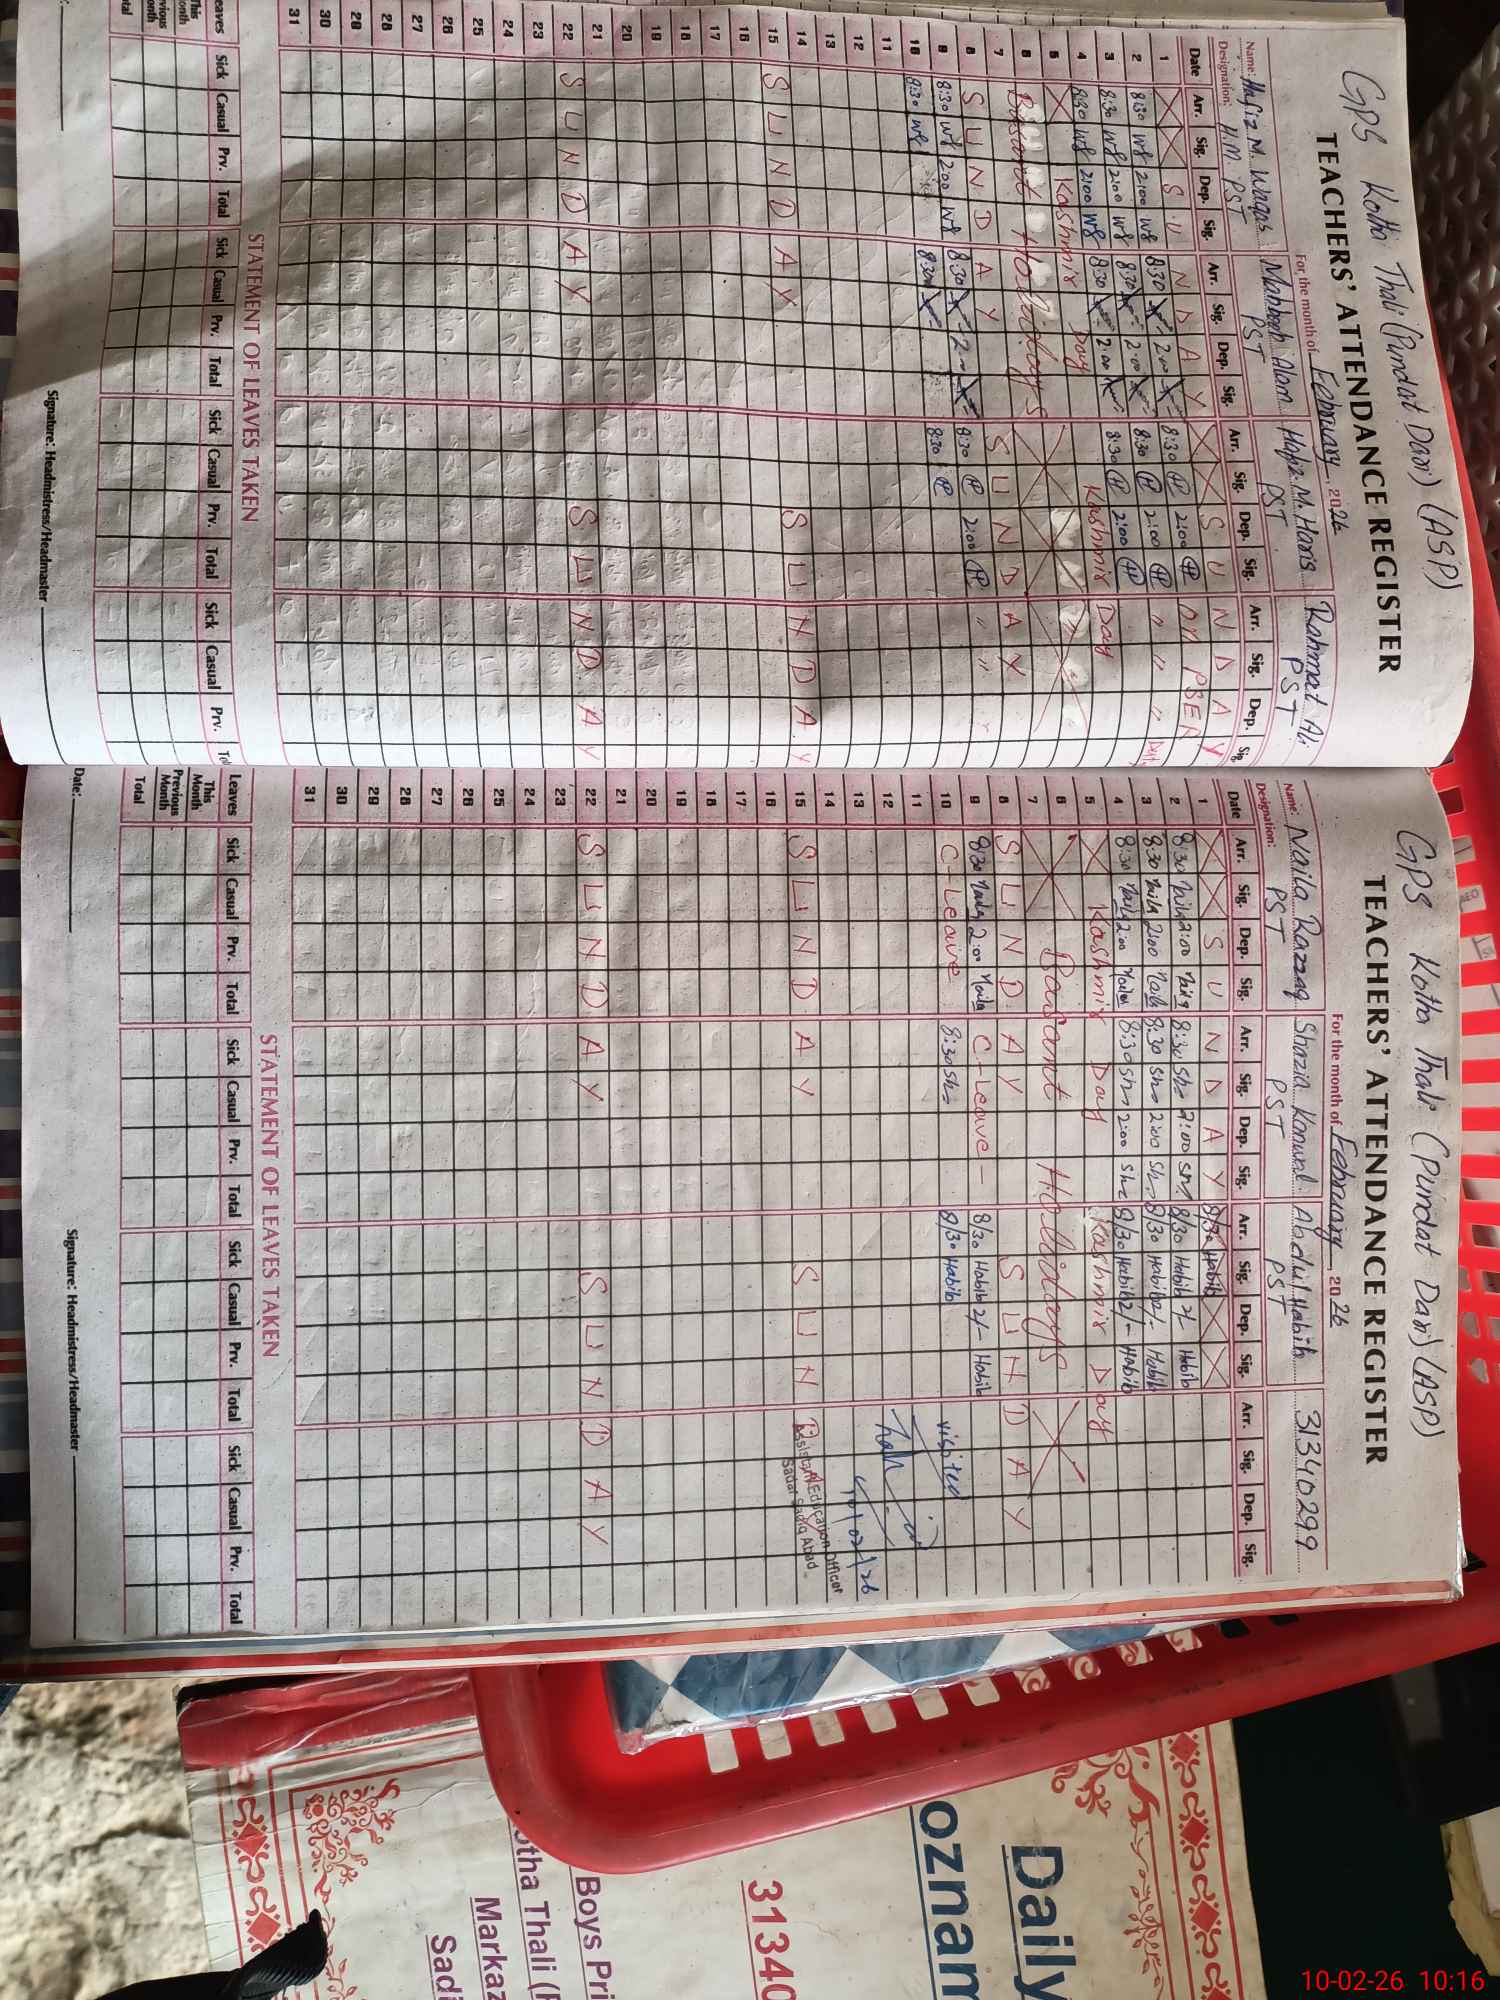 GPS Kotha Thali (Pundat Dari) (ASP)
TEACHERS' ATTENDANCE REGISTER
For the month of February, 2026
Name: Hafiz M. Waqas Mahboob Alam Hafiz M. Haris Rahmat Ali
Designation: H.M PST PST PST PST
Date Arr. Sig. Dep. Sig. Arr. Sig. Dep. Sig. Arr. Sig. Dep. Sig. Arr. Sig. Dep. Sig.
1 S U N D A Y S U N D A Y
2 8:30 2:00 8:30 2:00 8:30 2:00 on PSER Duty
3 8:30 2:00 8:30 2:00 8:30 2:00 " " "
4 8:30 2:00 8:30 2:00 8:30 2:00
5 Kashmir Day Kashmir Day
6 Basant Holidays
7
8 S U N D A Y S U N D A Y
9 8:30 2:00 8:30 2 8:30 2:00 " "
10 8:30 8:30 8:30
11
12
13
14
15 S U N D A Y S U N D A Y
16
17
18
19
20
21
22 S U N D A Y S U N D A Y
23
24
25
26
27
28
29
30
31
STATEMENT OF LEAVES TAKEN
Leaves Sick Casual Prv. Total Sick Casual Prv. Total Sick Casual Prv. Total Sick Casual Prv.
This Month
Previous Month
Total
Signature: Headmistress/Headmaster
GPS Kotha Thali (Pundat Dari) (ASP)
TEACHERS' ATTENDANCE REGISTER
For the month of February, 2026
Name: Naila Razzaq Shazia Kanwal Abdul Habib 31340299
Designation: PST PST PST
Date Arr. Sig. Dep. Sig. Arr. Sig. Dep. Sig. Arr. Sig. Dep. Sig. Arr. Sig. Dep. Sig.
1 S U N D A Y 8/30 Habib
2 8:30 Naila 2:00 Naila 8:30 Sh 2:00 Sh 8/30 Habib 2/- Habib
3 8:30 Naila 2:00 Naila 8:30 Sh 2:00 Sh 8/30 Habib 2/- Habib
4 8:30 Naila 2:00 Naila 8:30 Sh 2:00 Sh 8/30 Habib 2/- Habib
5 Kashmir Day Kashmir Day
6 Basant Hollidays
7
8 S U N D A Y S U N D A Y
9 8:30 Naila 2:00 Naila C-Leave- 8/30 Habib 2/- Habib
10 C-Leave 8:30 Sh 8/30 Habib visited
11
12
13 10/02/26
14 Assistant Education Officer
15 S U N D A Y S U N D Sadar Sadiq Abad
16
17
18
19
20
21
22 S U N D A Y S U N D A Y
23
24
25
26
27
28
29
30
31
STATEMENT OF LEAVES TAKEN
Leaves Sick Casual Prv. Total Sick Casual Prv. Total Sick Casual Prv. Total Sick Casual Prv. Total
This Month
Previous Month
Total
Date: Signature: Headmistress/Headmaster
Daily
oznam
31340
Boys Pri
otha Thali (
Markaz
Sadi
10-02-26 10:16